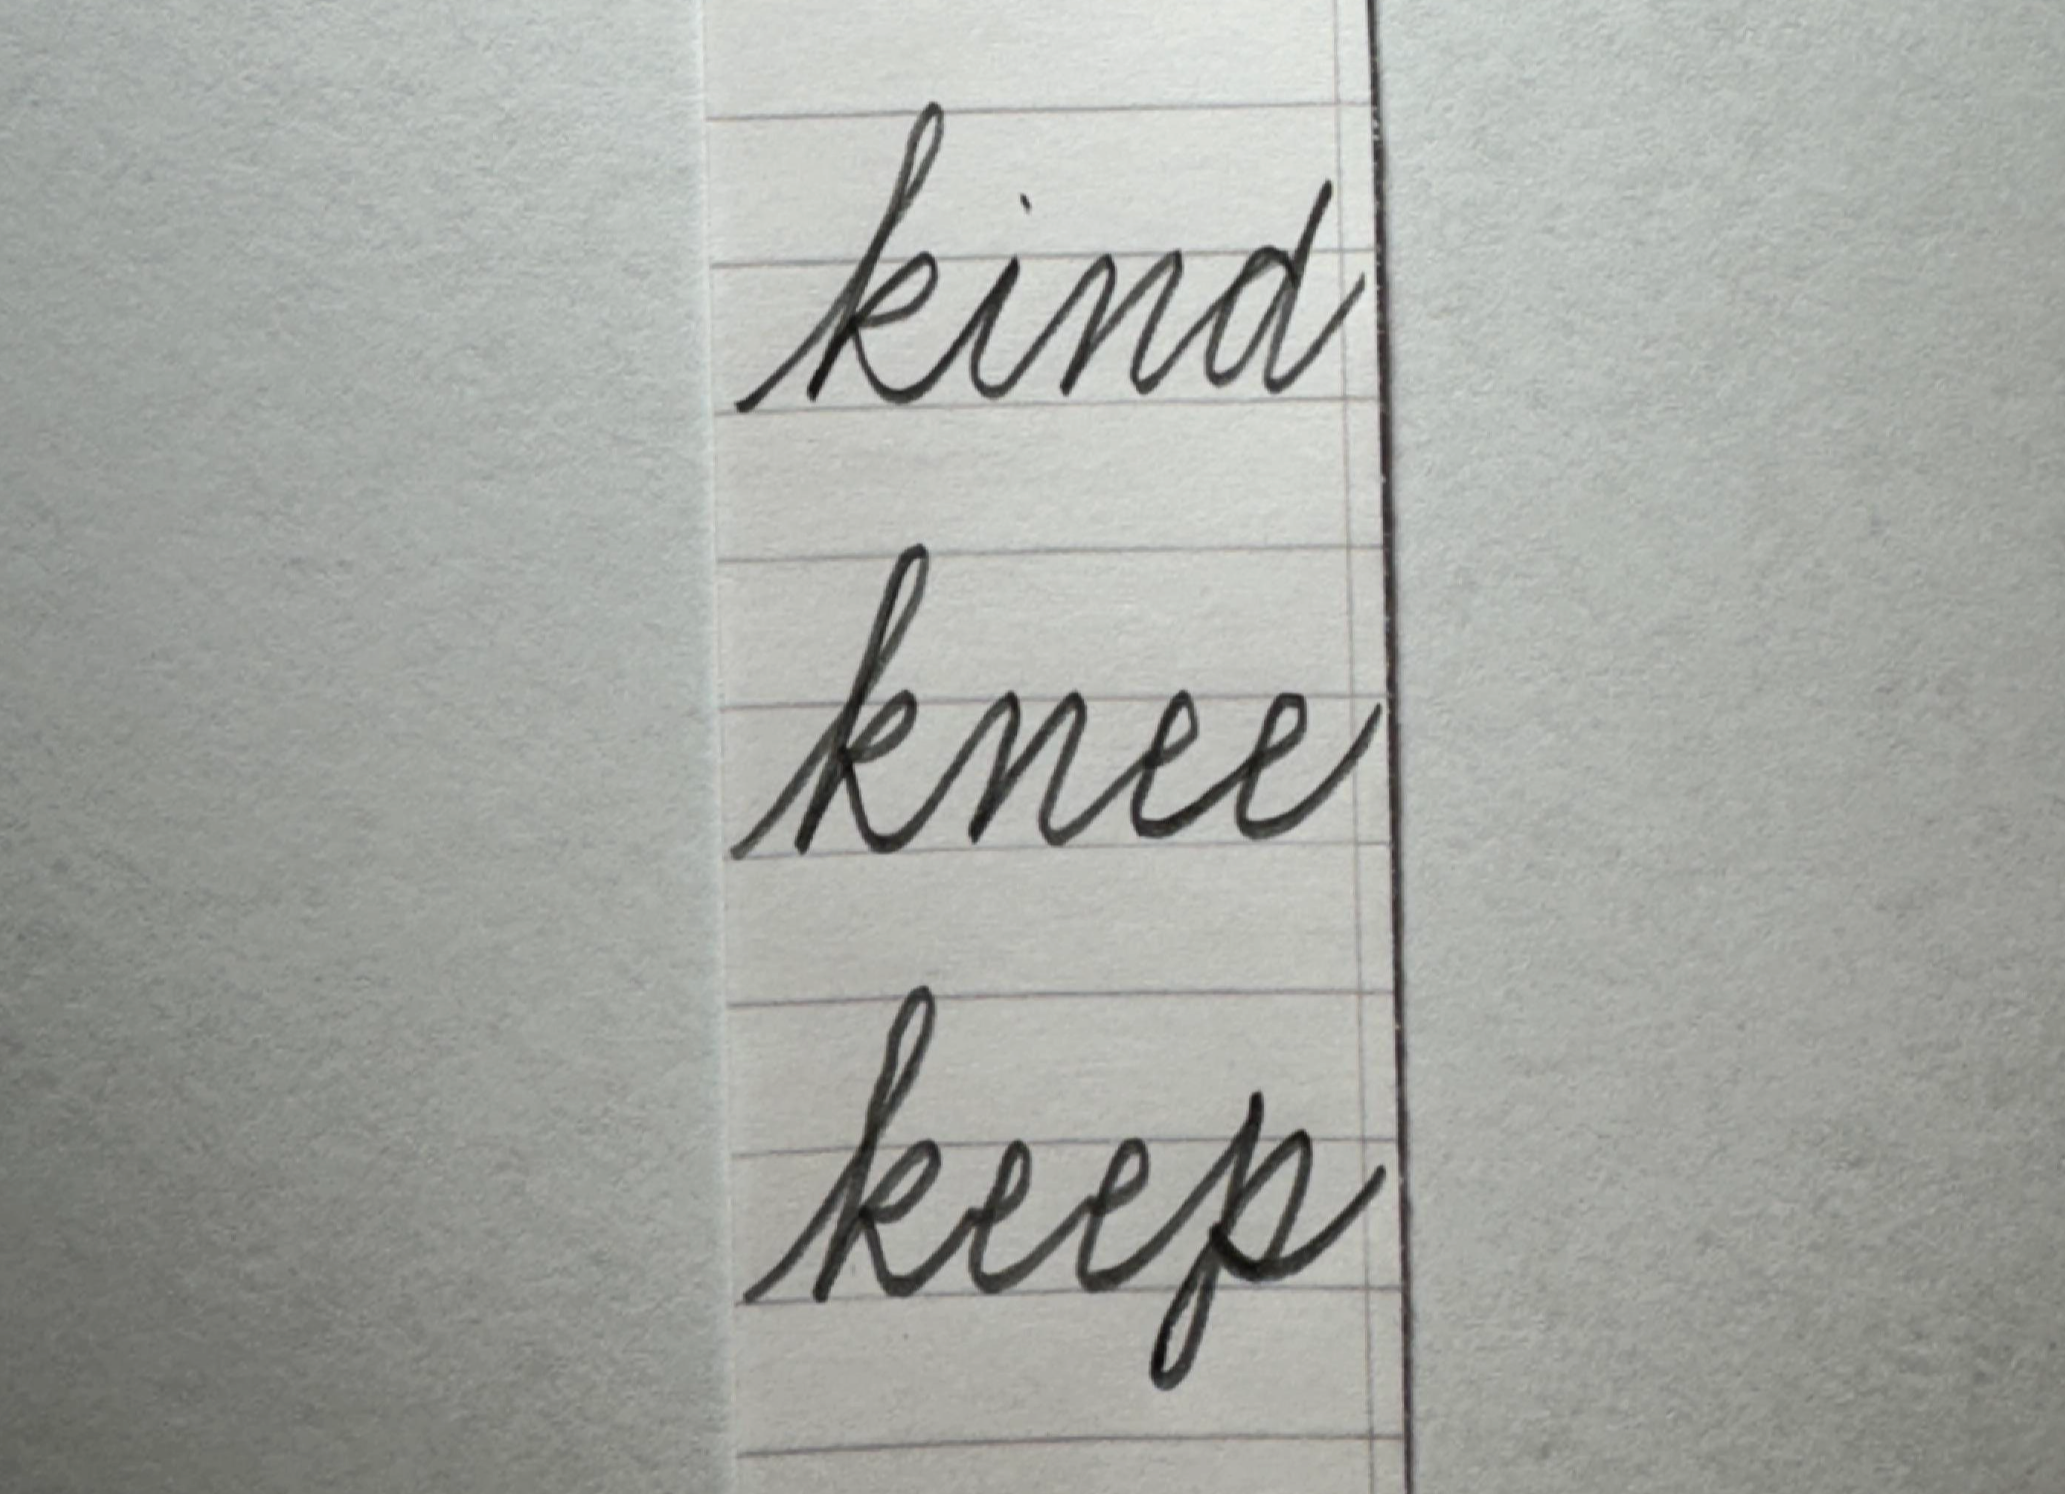 kind
knee
keep